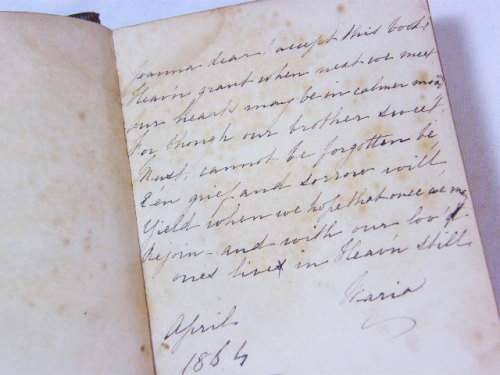 Joanna dear! accept this book,
Heav'n grant when next we meet
our hearts may be in calmer mood
For though our brother sweet
Must cannot be forgotten be
E'en grief and sorrow will
Yield when we hope that once we may
Rejoin - and with our lov'd
ones live in Heav'n still
Maria
April
1864